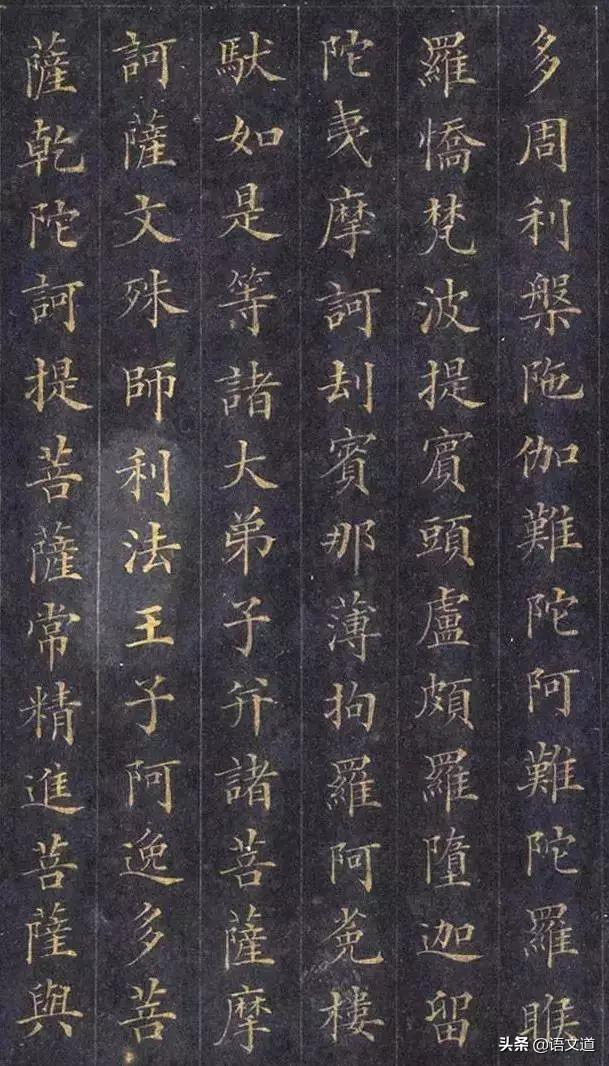 多周利槃陁伽難陀阿難陀羅睺
羅憍梵波提賓頭盧頗羅墮迦留
陀夷摩訶刦賓那薄拘羅阿㝹樓
馱如是等諸大弟子并諸菩薩摩
訶薩文殊師利法王子阿逸多菩
薩乾陀訶提菩薩常精進菩薩與
头条 @语文道